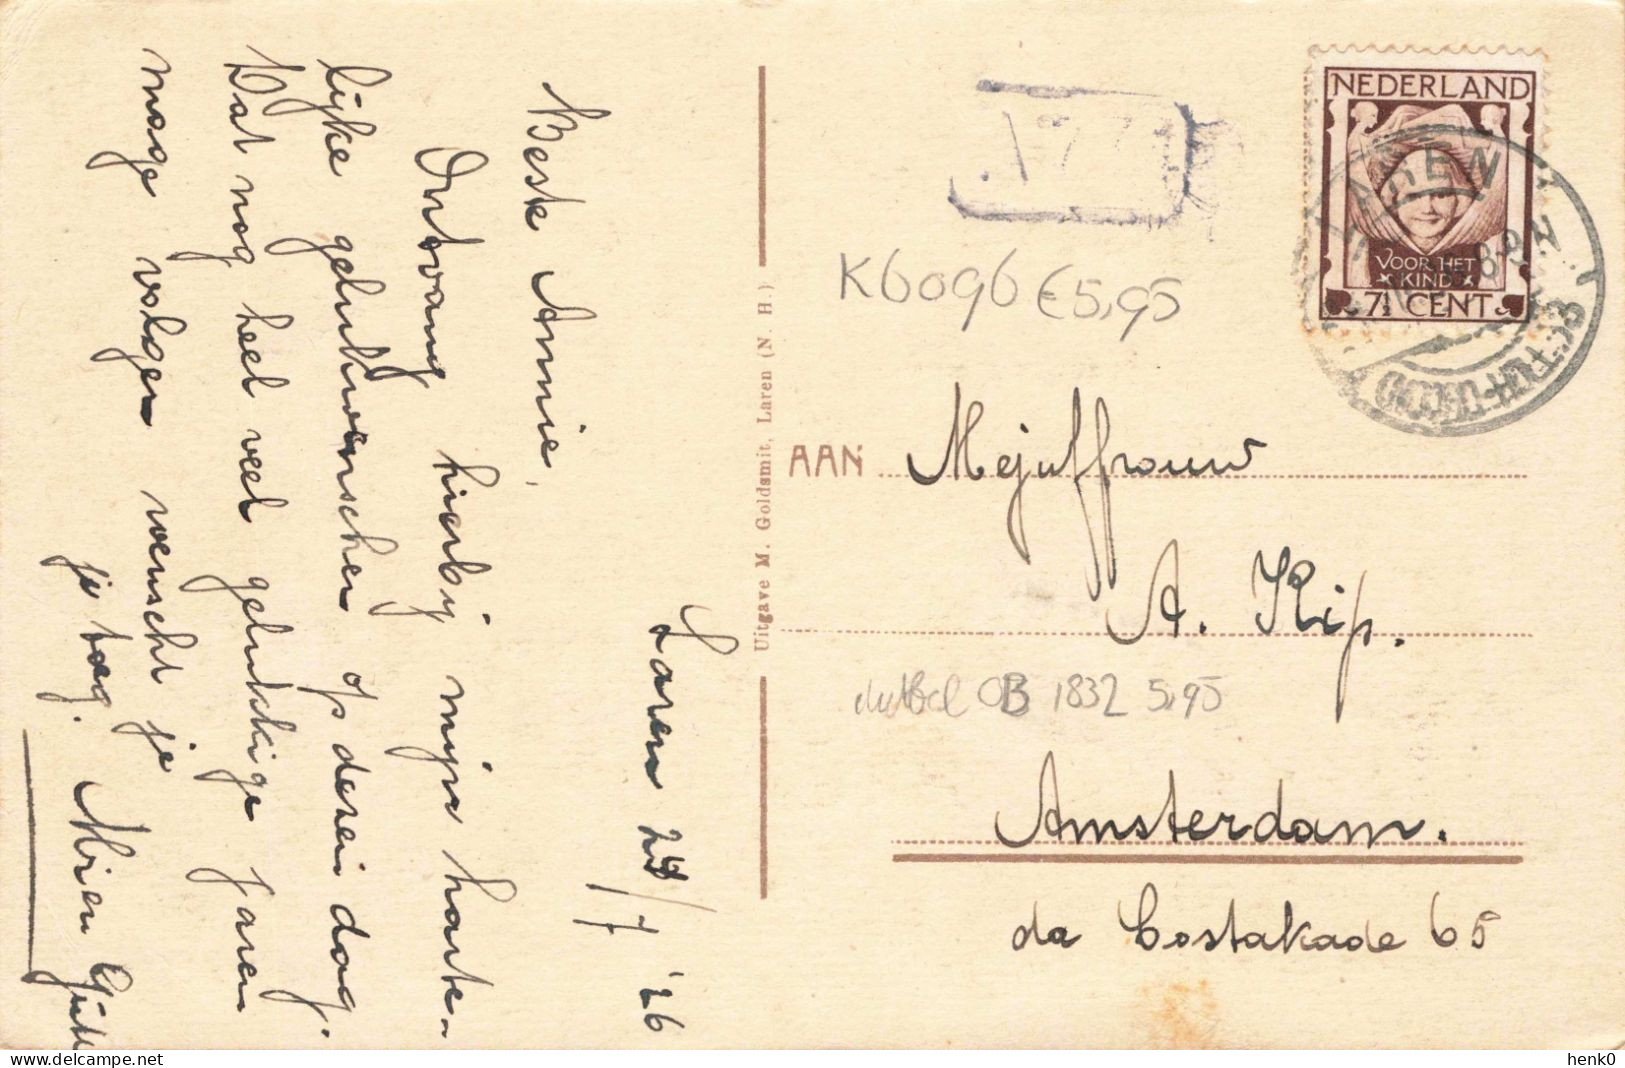 Laren 29/7 '26
Beste Annie,
Ontvang hierbij mijn harte-
lijke gelukwenschen op dezen dag.
Dat nog heel veel gelukkige jaren
moge volgen wenscht je
je toeg. Mien
Uitgave M. Goldsmit, Laren (N. H.)
NEDERLAND
VOOR HET
KIND
7½ CENT
LAREN
K6096 €5,95
AAN Mejuffrouw
A. Kip.
OB 1832 5,95
Amsterdam.
da Costakade 65
henk0